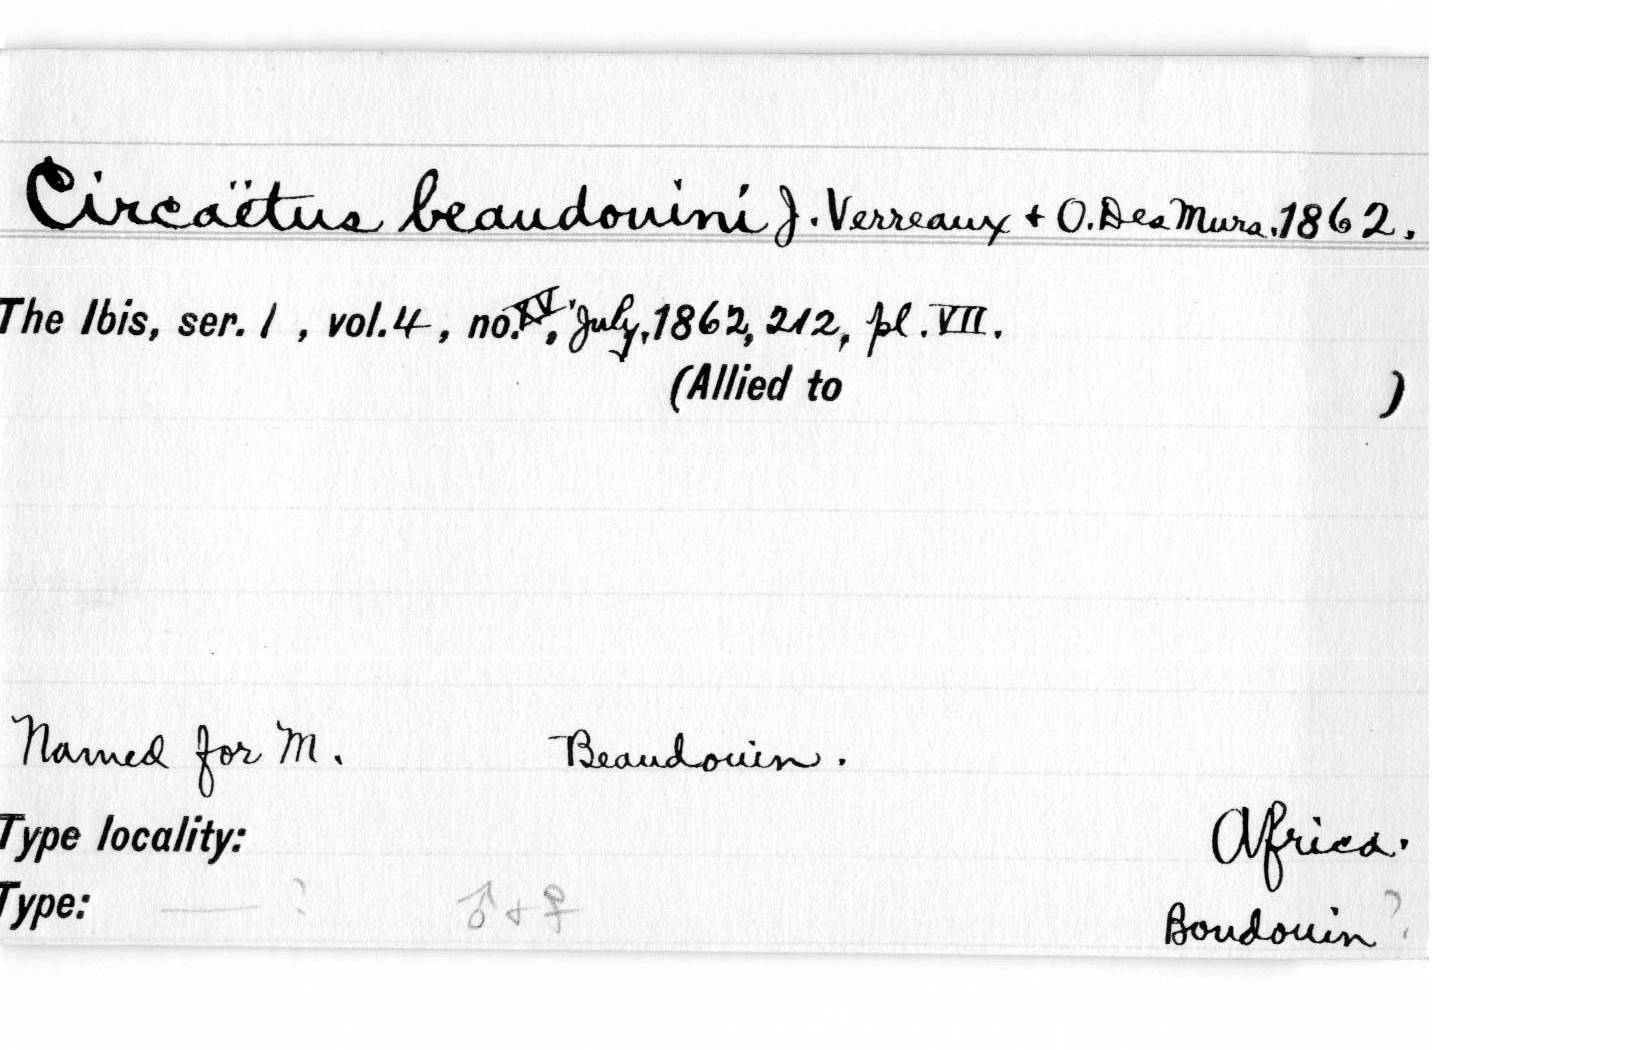 Circaëtus beaudouini J. Verreaux + O. Des Murs. 1862.
The Ibis, ser. 1 , vol. 4 , no. XV, July, 1862, 212, pl. VII.
(Allied to )
Named for M. Beaudouin.
Type locality: Africa.
Type: — ? ♂ + ♀ Boudouin ?